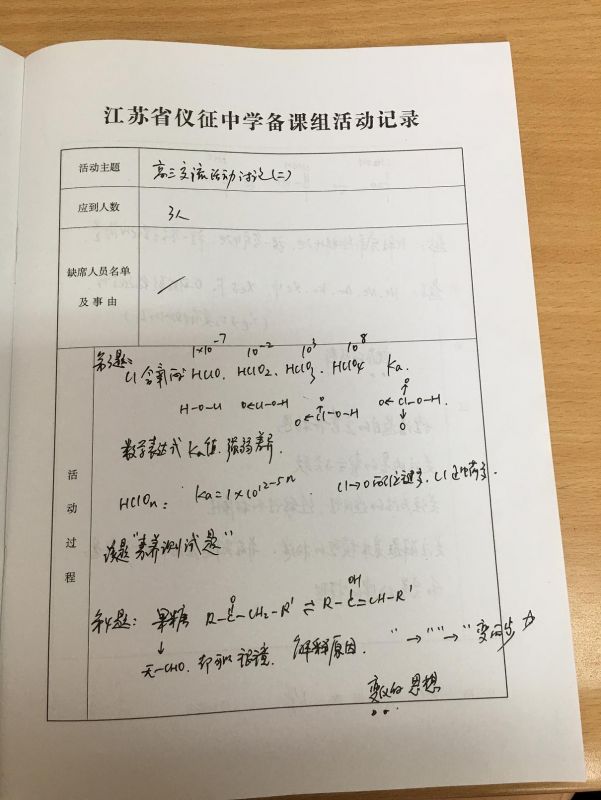 江苏省仪征中学备课组活动记录
活动主题 高三交流活动讨论(二)
应到人数 3人
缺席人员名单
及事由
活动过程
第3题:
1×10⁻⁷ 10⁻² 10³ 10⁸
Cl含氧酸 HClO. HClO₂. HClO₃. HClO₄ Ka.
H-O-Cl O←Cl-O-H O←Cl-O-H O←Cl-O-H.
O O O
数学表达式 Ka值. 强弱差异.
HClOn: Ka=1×10^12-5n. Cl→O的配位键多, Cl正电荷多.
该题"素养测试题"
第4题: 果糖 R-C-CH₂-R' ⇌ R-C=CH-R'
O OH
↓
无-CHO. 却可以 银镜. 解释原因. "→""→"变的
变化的思想